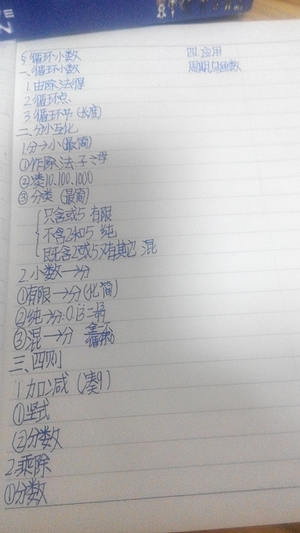 §循环小数
一、循环小数
1.由除法得
2.循环点
3.循环节(长度)
二、分小互化
1.分→小(最简)
①作除法:子÷母
②凑10.100.1000
③分类(最简)
只含2或5 有限
不含2和5 纯
既含2或5又有其它 混
2.小数→分
①有限→分(化简)
②纯→分:
③混→分
三、四则
1.加减(凑9)
①竖式
②分数
2.乘除
①分数
四.应用
周期